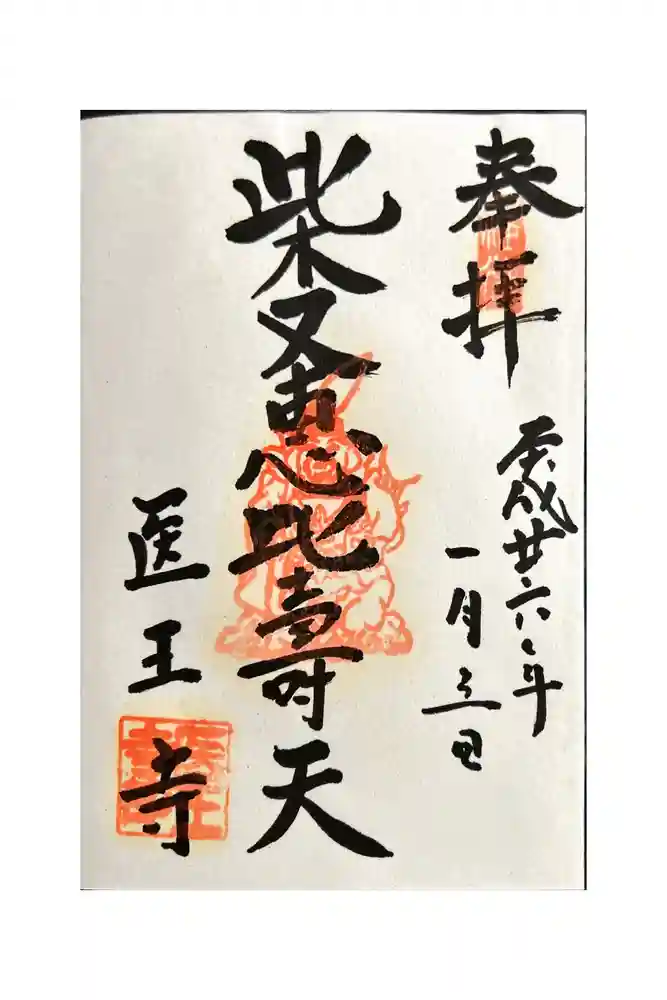 奉拝
平成廿六年
一月三日
柴又恵比寿天
医王寺